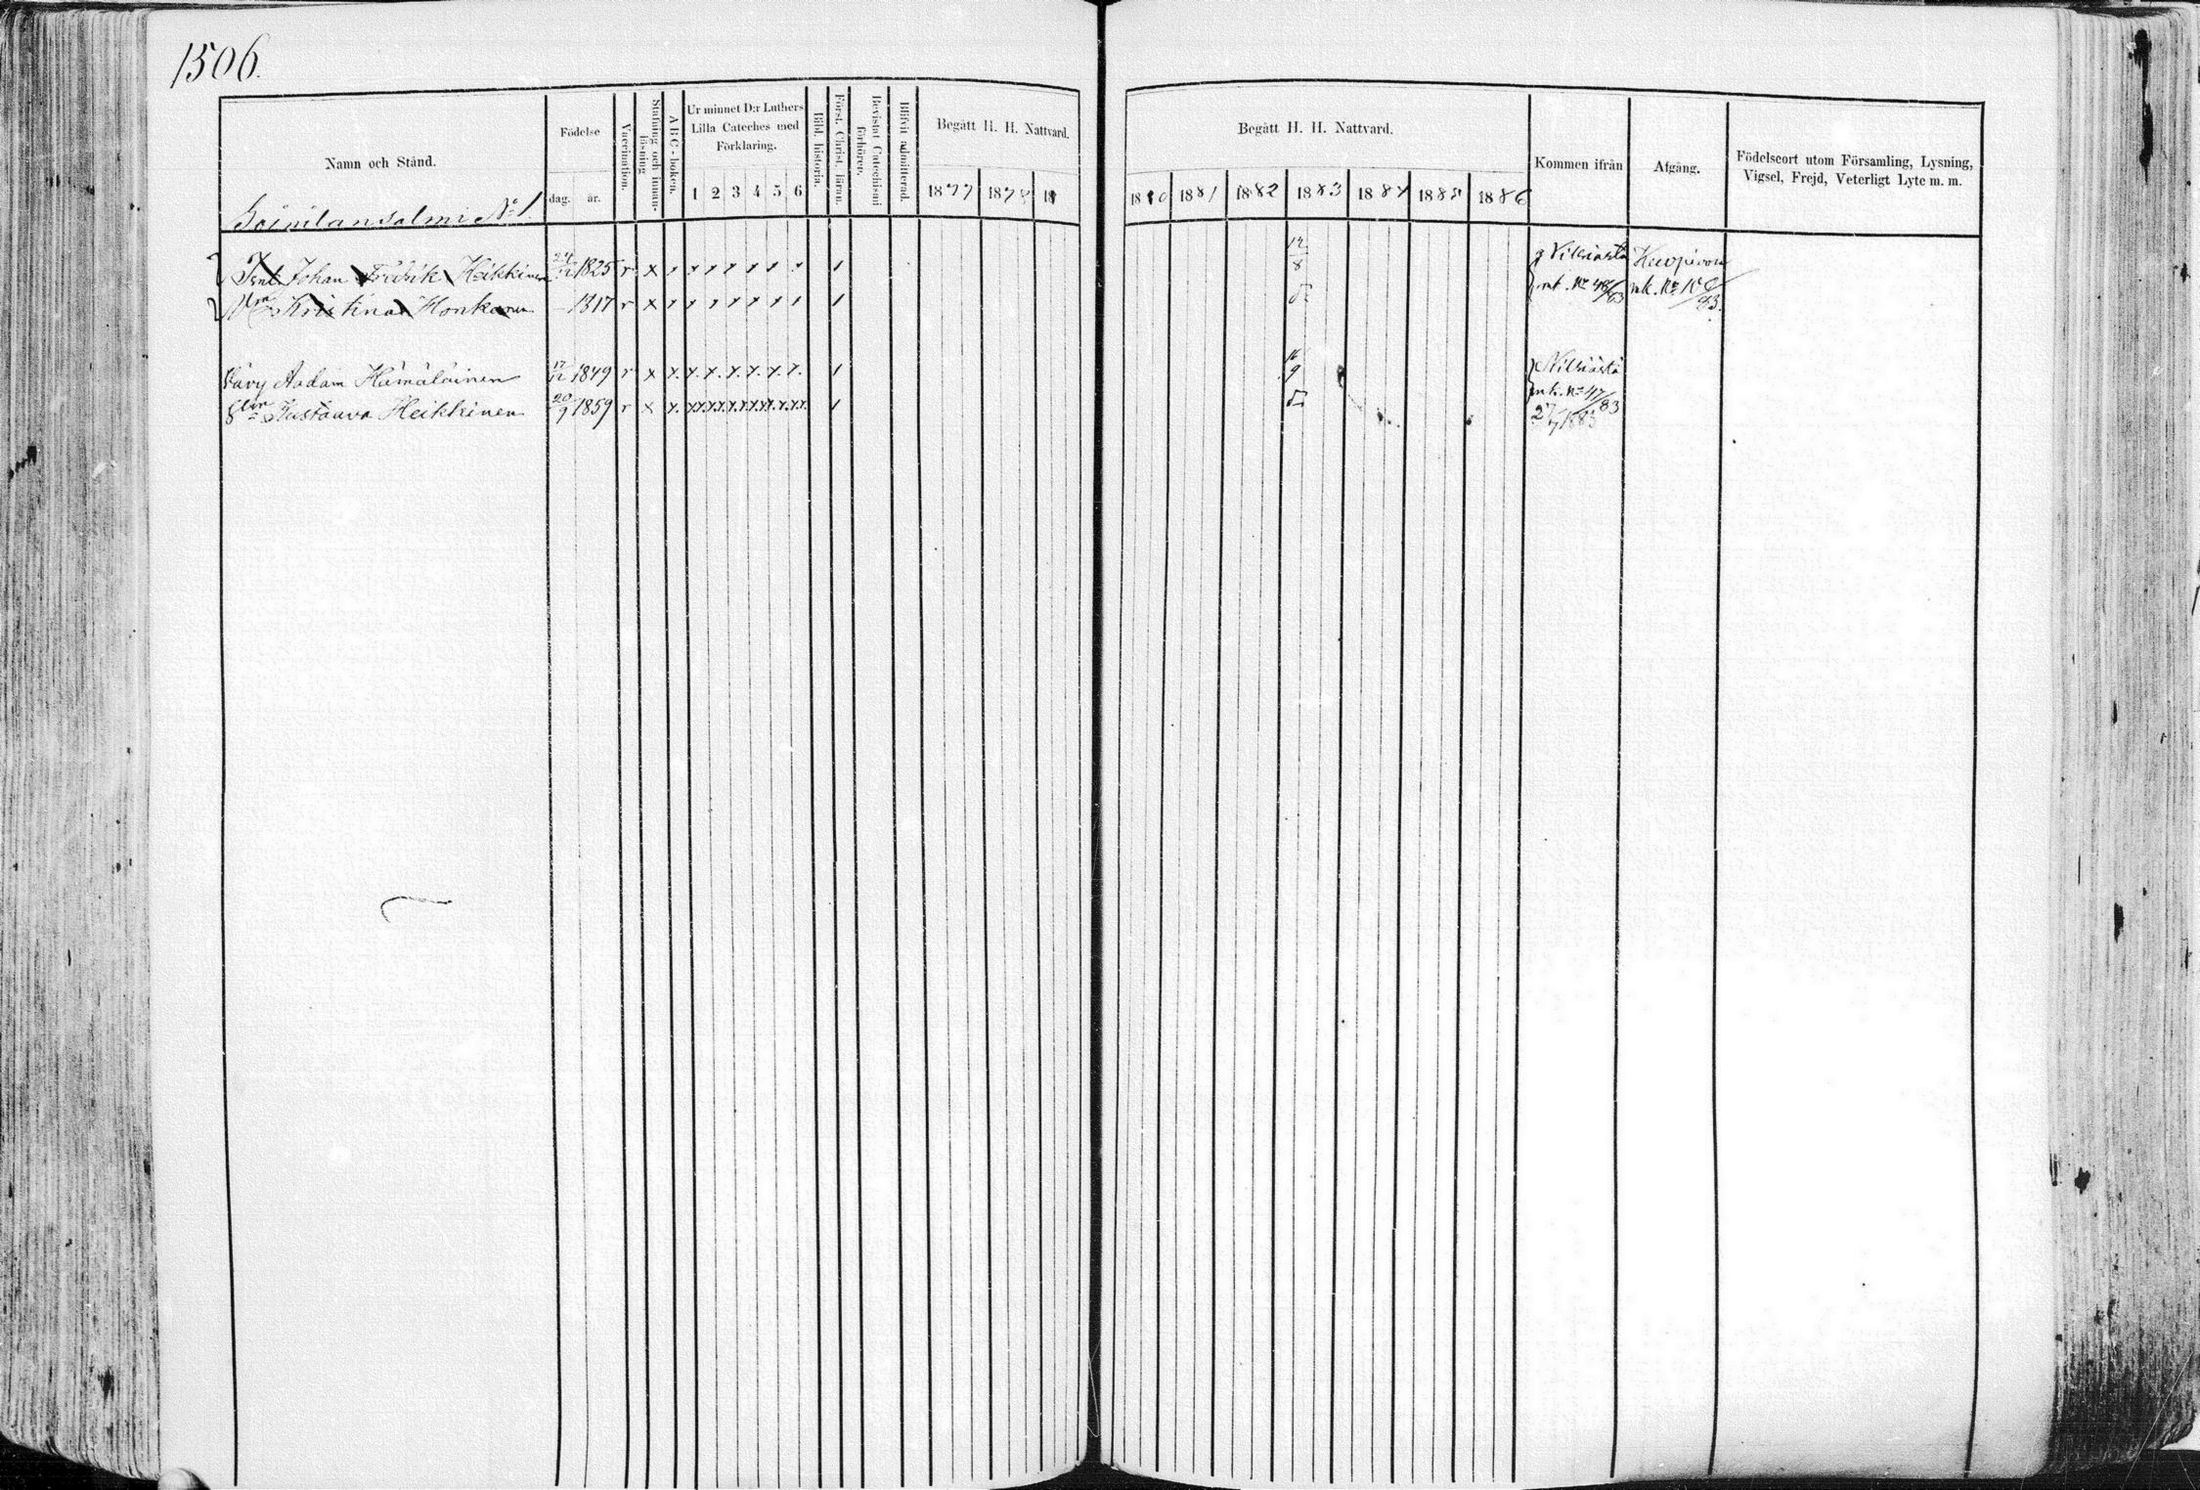 1506.
Namn och Stånd.
Födelse
dag. år.
Vaccination.
Stafning och innan-
läsning
A B C - boken.
Ur minnet D:r Luthers
Lilla Cateches med
Förklaring.
1 2 3 4 5 6
Bibl. historia.
Först. Christ. läran.
Bevistat Catechismi
förhörer.
Blifvit admitterad.
Begått H. H. Nattvard.
1877 1878 18
Begått H. H. Nattvard.
1880 1881 1882 1883 1884 1885 1886
Kommen ifrån
Afgång.
Födelseort utom Församling, Lysning,
Vigsel, Frejd, Veterligt Lyte m. m.
No 1
Johan Fredrik Heikkinen 24/12 1825 r x 12/8 Nilsiästä Kuopioon
Kristina Honkanen 1817 r x mk. No 48/83 mk. No
Vävy Aadam Hämäläinen 17/12 1849 r x 16/9 Nilsiästä
Kustaava Heikkinen 20/9 1859 r x mk. No 47/83
1883